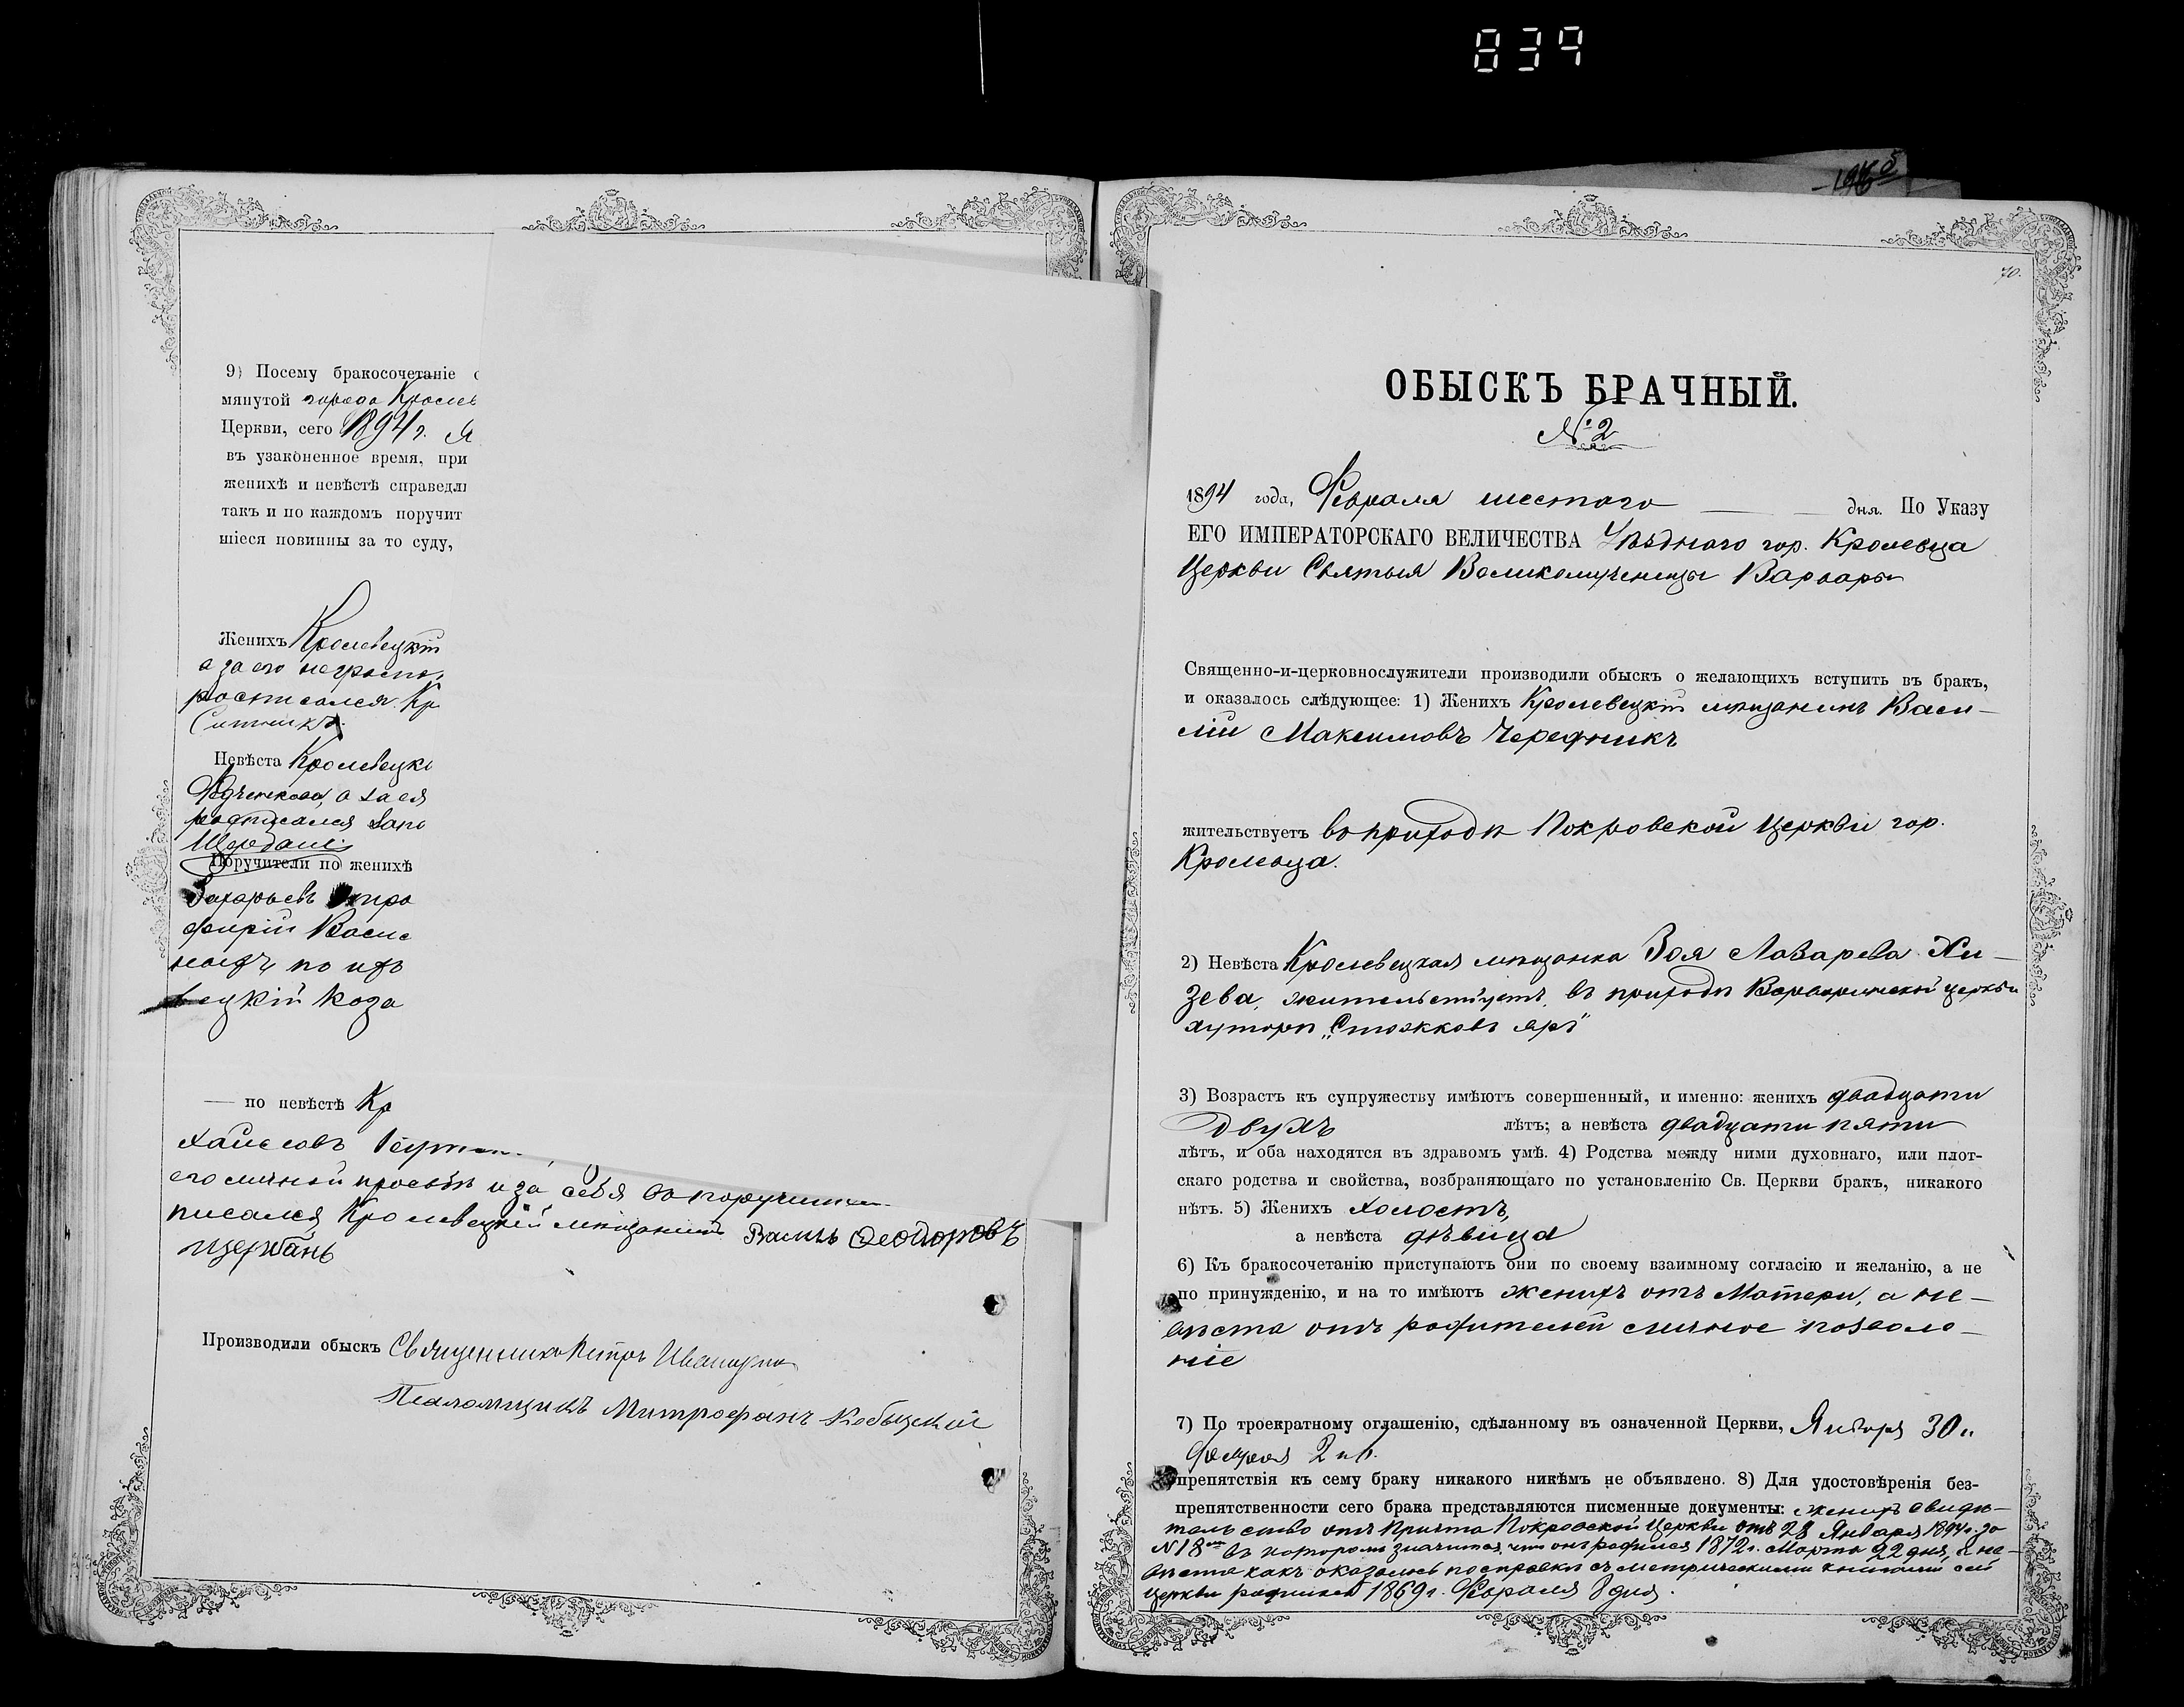 839
1965
9) Посему бракосочетаніе
мянутой города Кролев
Церкви, сего 1894 г. Я
въ узаконенное время, при
женихѣ и невѣстѣ справедли
такъ и по каждомъ поручит
шіеся повинны за то суду,
Женихъ Кролевецкій
а за его неграмо
росписался Кр
Ситникъ
Невѣста Кролевецка
а за ея
росписался
Поручители по женихѣ
Захарьевъ
Васил
вецкій коза
— по невѣстѣ Кр
хайловъ
его личной просьбѣ и за себя
писался Кролевецкій мѣщанинъ Ѳеодоровъ
Щербань
Производили обыскъ Священникъ Петръ
Псаломщикъ Митрофанъ
70.
ОБЫСКЪ БРАЧНЫЙ.
№ 2
1894 года, Февраля шестого дня. По Указу
ЕГО ИМПЕРАТОРСКАГО ВЕЛИЧЕСТВА Уѣзднаго гор. Кролевца
Церкви Святыя Великомученицы Варвары
Священно-и-церковнослужители производили обыскъ о желающихъ вступить въ бракъ,
и оказалось слѣдующее: 1) Женихъ Кролевецкій мѣщанинъ Васи-
лій Максимовъ Чередникъ
жительствуетъ въ приходѣ Покровской Церкви гор.
Кролевца.
2) Невѣста Кролевецкая мѣщанка Зоя Лазарева Хи-
зева, жительствуетъ въ приходѣ Варваринской церкви
хуторѣ „Стожковъ яръ"
3) Возрастъ къ супружеству имѣютъ совершенный, и именно: женихъ двадцати
двухъ лѣтъ; а невѣста двадцати пяти
лѣтъ, и оба находятся въ здравомъ умѣ. 4) Родства между ними духовнаго, или плот-
скаго родства и свойства, возбраняющаго по установленію Св. Церкви бракъ, никакого
нѣтъ. 5) Женихъ холостъ,
а невѣста дѣвица
6) Къ бракосочетанію приступаютъ они по своему взаимному согласію и желанію, а не
по принужденію, и на то имѣютъ женихъ отъ Матери, а не-
вѣста отъ родителей личное позволе-
ніе
7) По троекратному оглашенію, сдѣланному въ означенной Церкви, Января 30 и
февраля 2 и 6.
препятствія къ сему браку никакого никѣмъ не объявлено. 8) Для удостовѣренія без-
препятственности сего брака представляются писменные документы: женихъ свидѣ-
тельство отъ причта Покровской Церкви отъ 28 Января 1894 г. за
№ 18 въ которомъ значится, что онъ родился 1872 г. Марта 22 дня, а не-
вѣста какъ оказалось по справкѣ съ метрическими книгами сей
церкви родилась 1869 г. Февраля 8 дня.